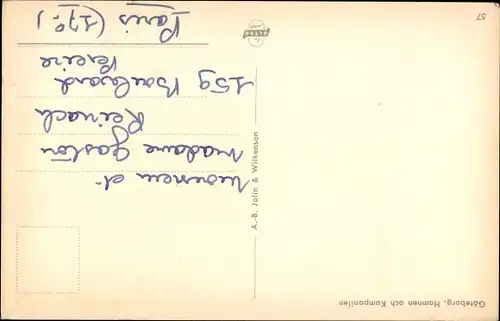 Göteborg. Hamnen och Kampanilen
Monsieur et
Madame Gaston
Reinach
159 Boulevard
Pereire
Paris (17e.)
A.-B. Jolin & Wilkenson
57